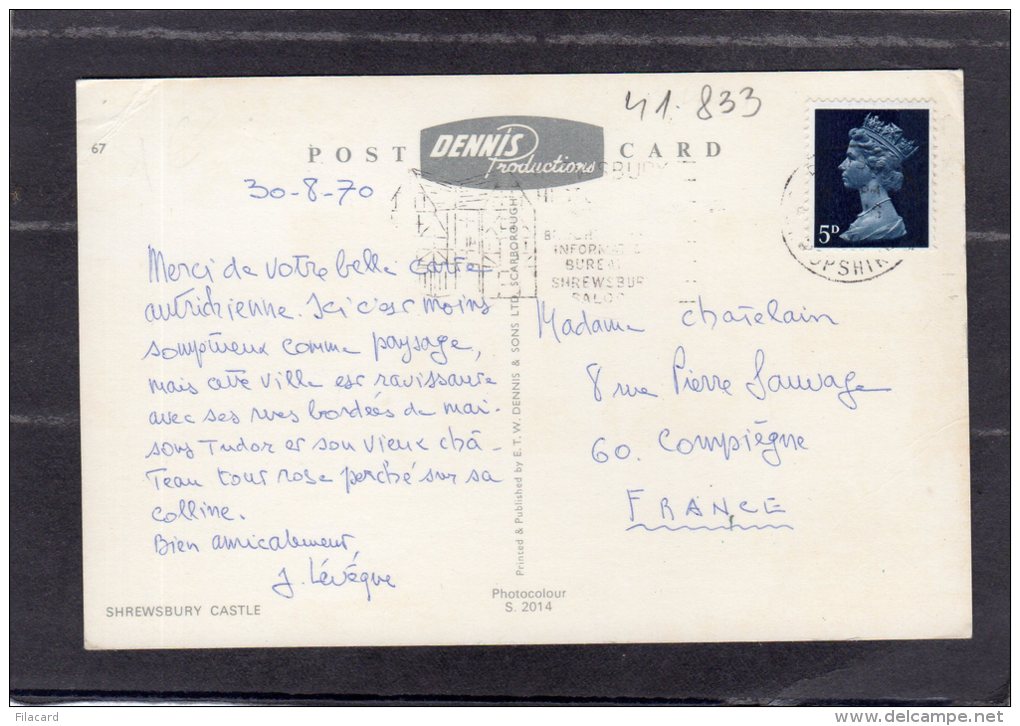 67
41.833
POST CARD
DENNIS
Productions
5D
SHREWSBURY
INFORMAT
BUREAU
SHREWSBUR
SALOP
OPSHIR
30-8-70
Merci de votre belle carte
autrichienne. Ici c'est moins
somptueux comme paysage,
mais cette ville est ravissante
avec ses rues bordées de mai-
sons Tudor et son vieux châ-
teau tout rose perché sur sa
colline.
Bien amicalement,
J. Lévêque
SHREWSBURY CASTLE
Printed & Published by E. T. W. DENNIS & SONS LTD., SCARBOROUGH
Photocolour
S. 2014
Madame Chatelain
8 rue Pierre Sauvage
60. Compiègne
FRANCE
Filacard
www.delcampe.net